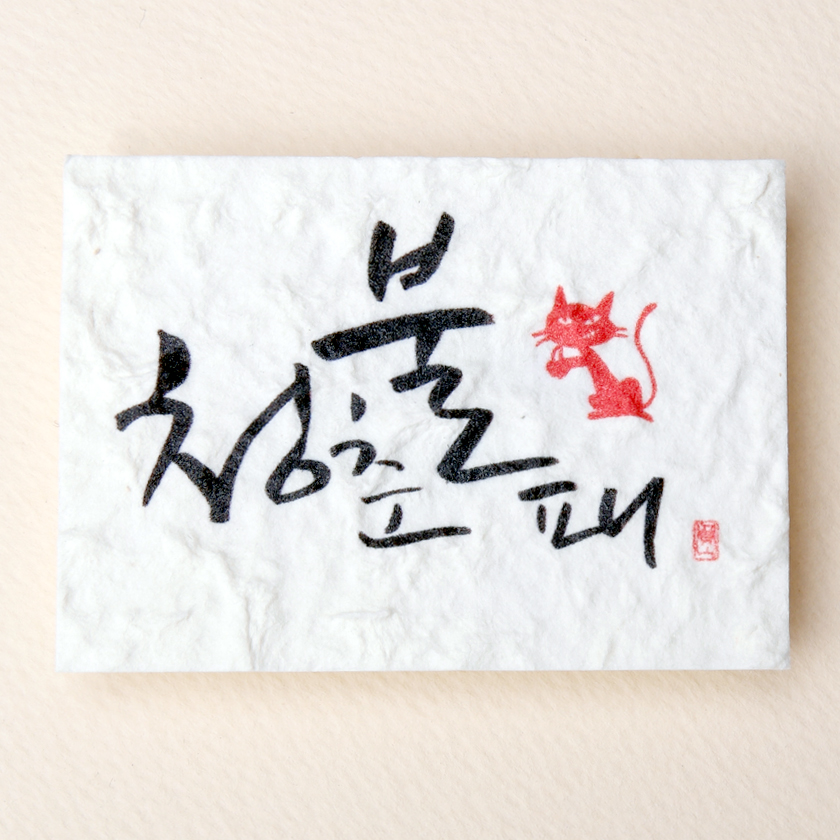 청춘불패